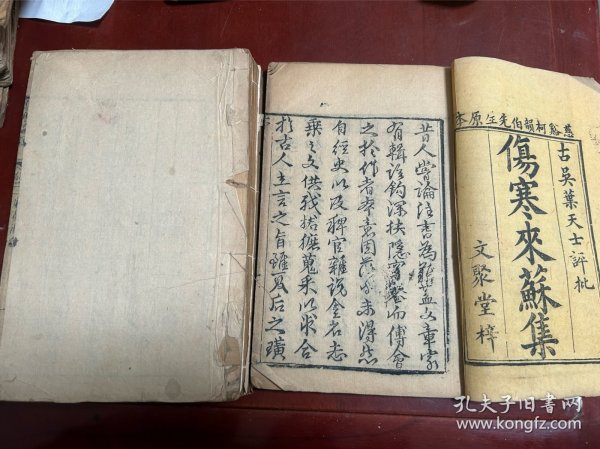 慈谿柯韻伯先生原本
古吳葉天士評批
傷寒來蘇集
文聚堂梓
昔人嘗論註書為難蓋文章家
有輯註鈎深抉隱穿鑿而傅會
之於作者本意因茫未得然
自經史以及稗官雜說金石志
乘之文供我搭摭蒐采以求合
於古人立言之旨雖夏后之璜
孔夫子旧书网
www.kongfz.com